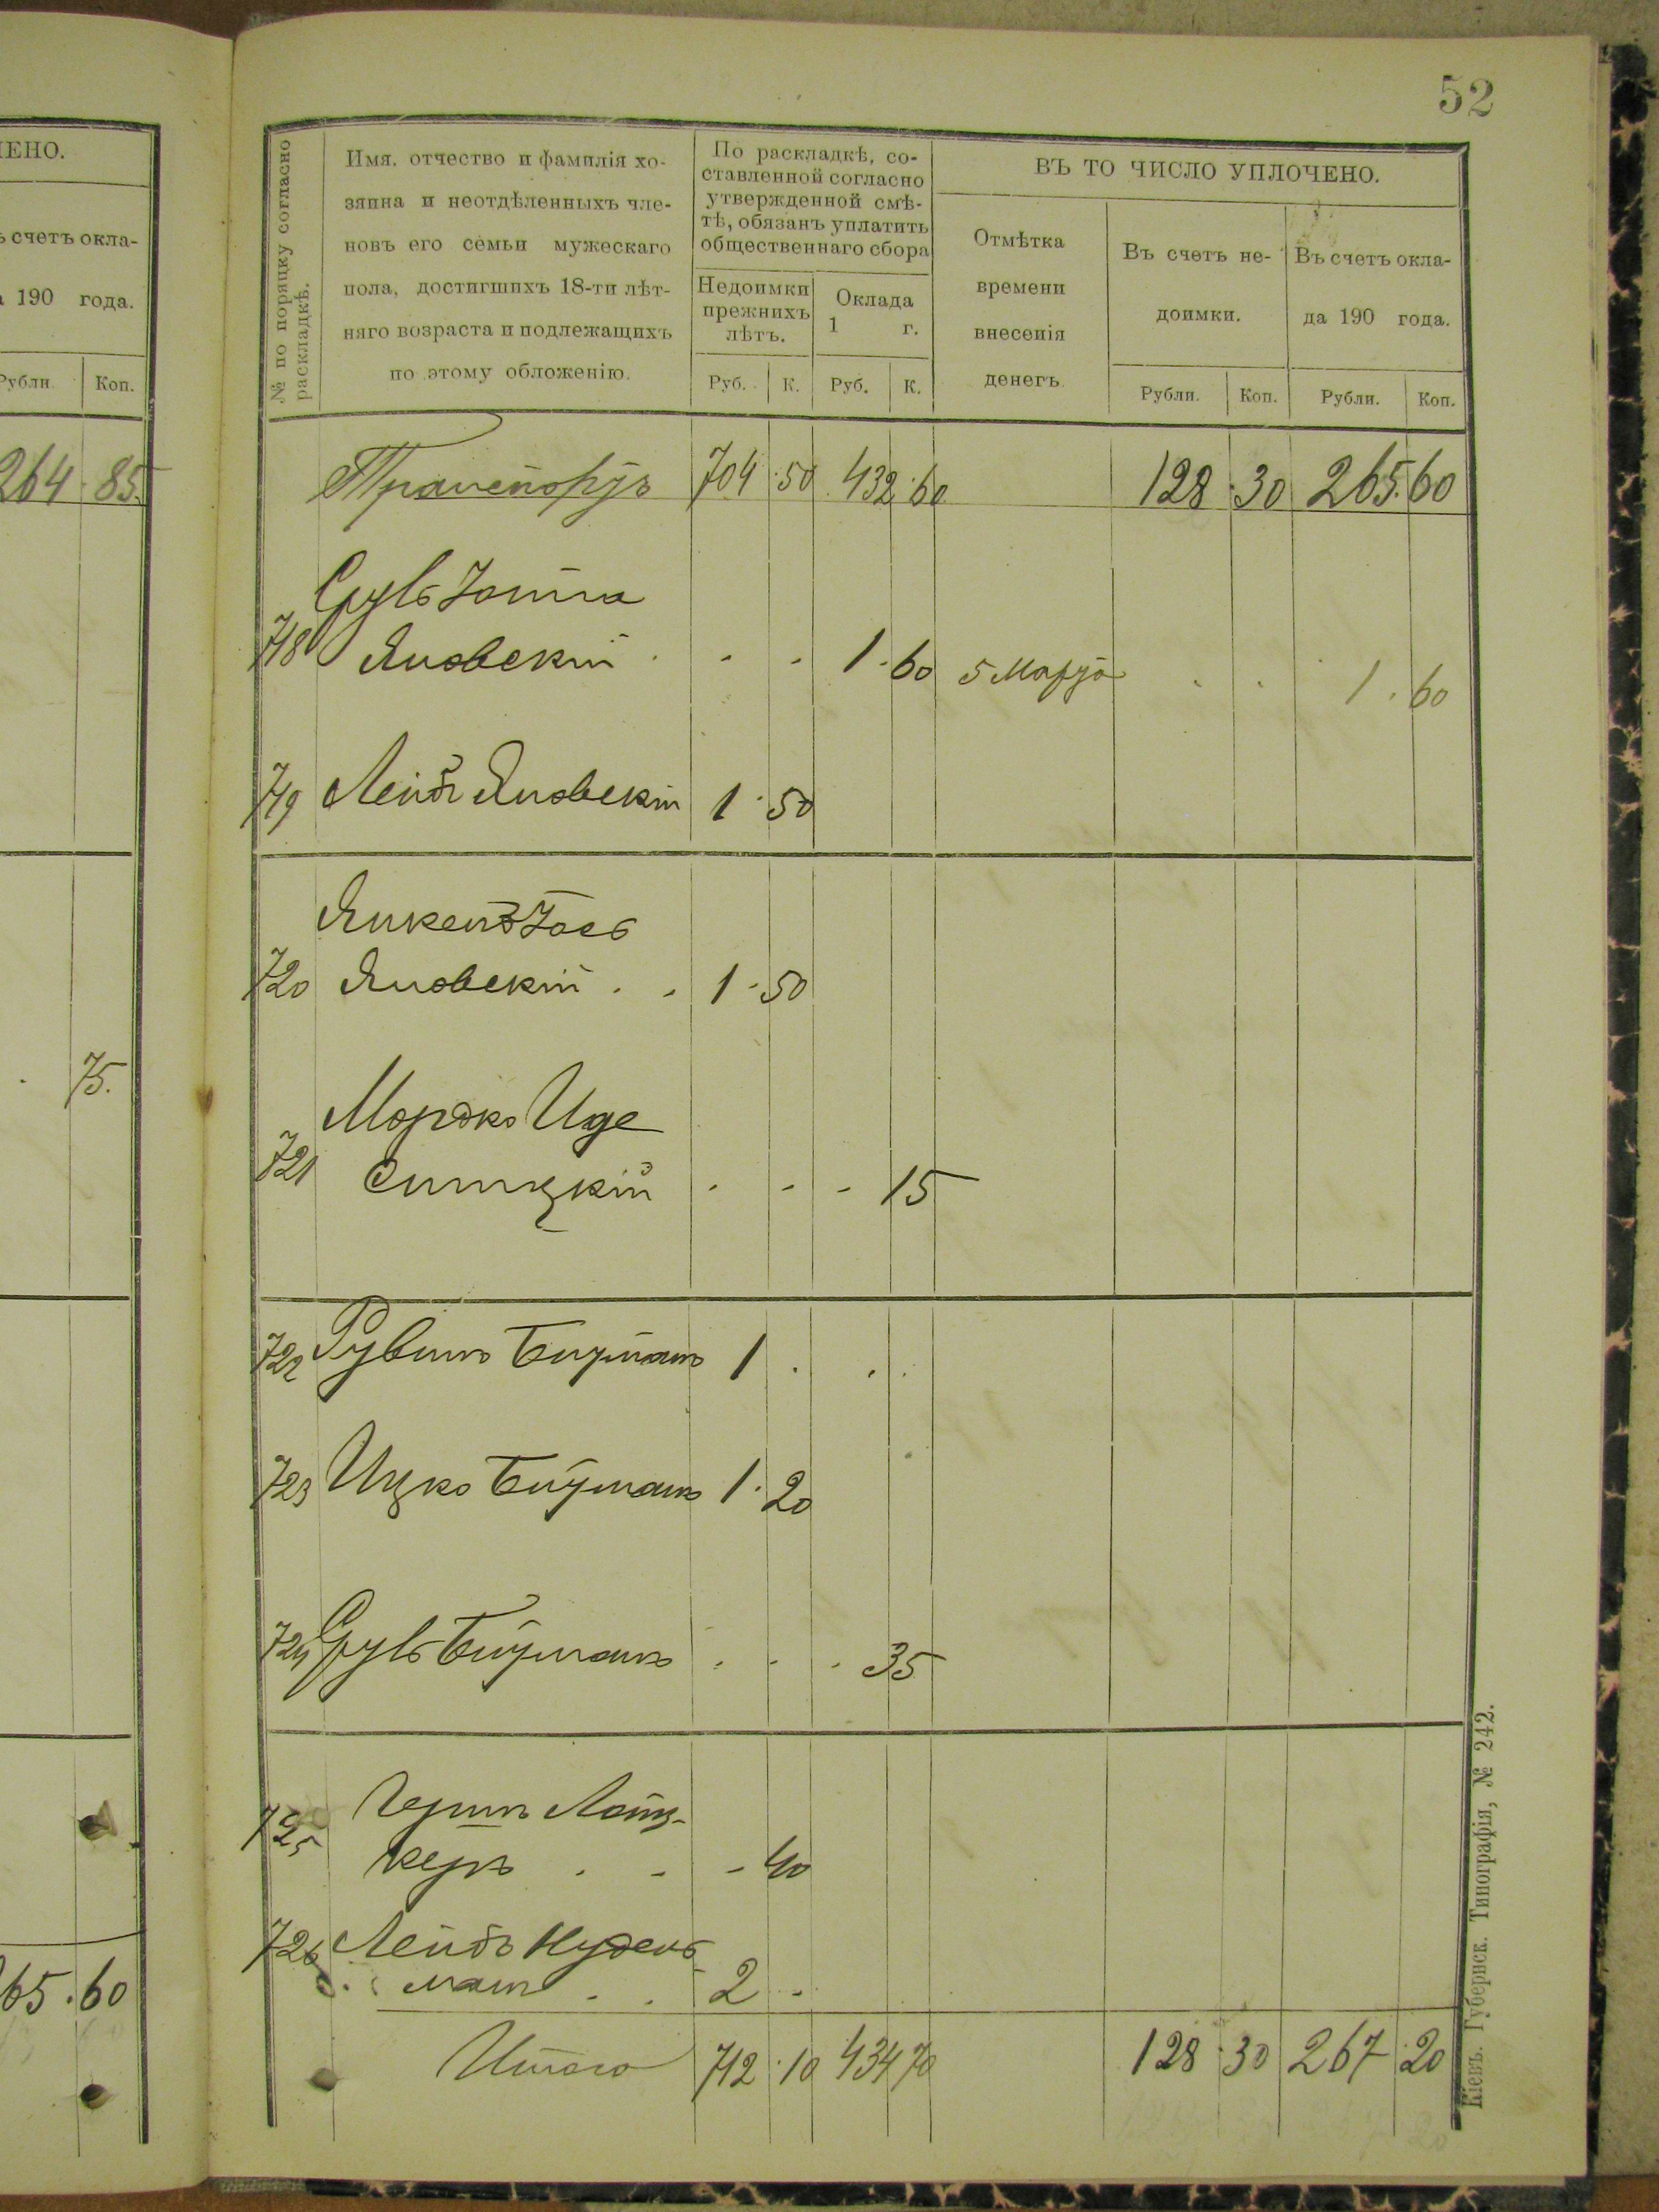 52
ЧЕНО.
ъ счетъ окла-
а 190 года.
Рубли. Коп.
264 . 85.
75.
65 . 60
№ по порядку согласно
раскладкѣ.
Имя, отчество и фамилія хо-
зяина и неотдѣленныхъ чле-
новъ его семьи мужескаго
пола, достигшихъ 18-ти лѣт-
няго возраста и подлежащихъ
по этому обложенію.
По раскладкѣ, со-
ставленной согласно
утвержденной смѣ-
тѣ, обязанъ уплатить
общественнаго сбора
Недоимки
прежнихъ
лѣтъ.
Руб. К.
Оклада
1 г.
Руб. К.
ВЪ ТО ЧИСЛО УПЛОЧЕНО.
Отмѣтка
времени
внесенія
денегъ.
Въ счетъ не-
доимки.
Рубли. Коп.
Въ счетъ окла-
да 190 года.
Рубли. Коп.
Транспортъ 704 . 50 432 . 60 128 . 30 265 . 60
Сруль
718 Яновскій . . . 1 . 60 5 Марта . . 1 . 60
719 Лейбъ Яновскій 1 . 50
Янкель Іось
720 Яновскій . . 1 . 50
Мордко Иде
721 Ситицкій . . . 15
722 Рувинъ Бутманъ 1 . . .
723 Ицко Бутманъ 1 . 20
724 Сруль Бутманъ . . . 35
725 Гершъ
керъ . . - 40
726 Лейбъ Нудель
манъ . . 2 .
Итого 712 . 10 434 70 128 . 30 267 . 20
Кіевъ. Губернск. Типографія, № 242.